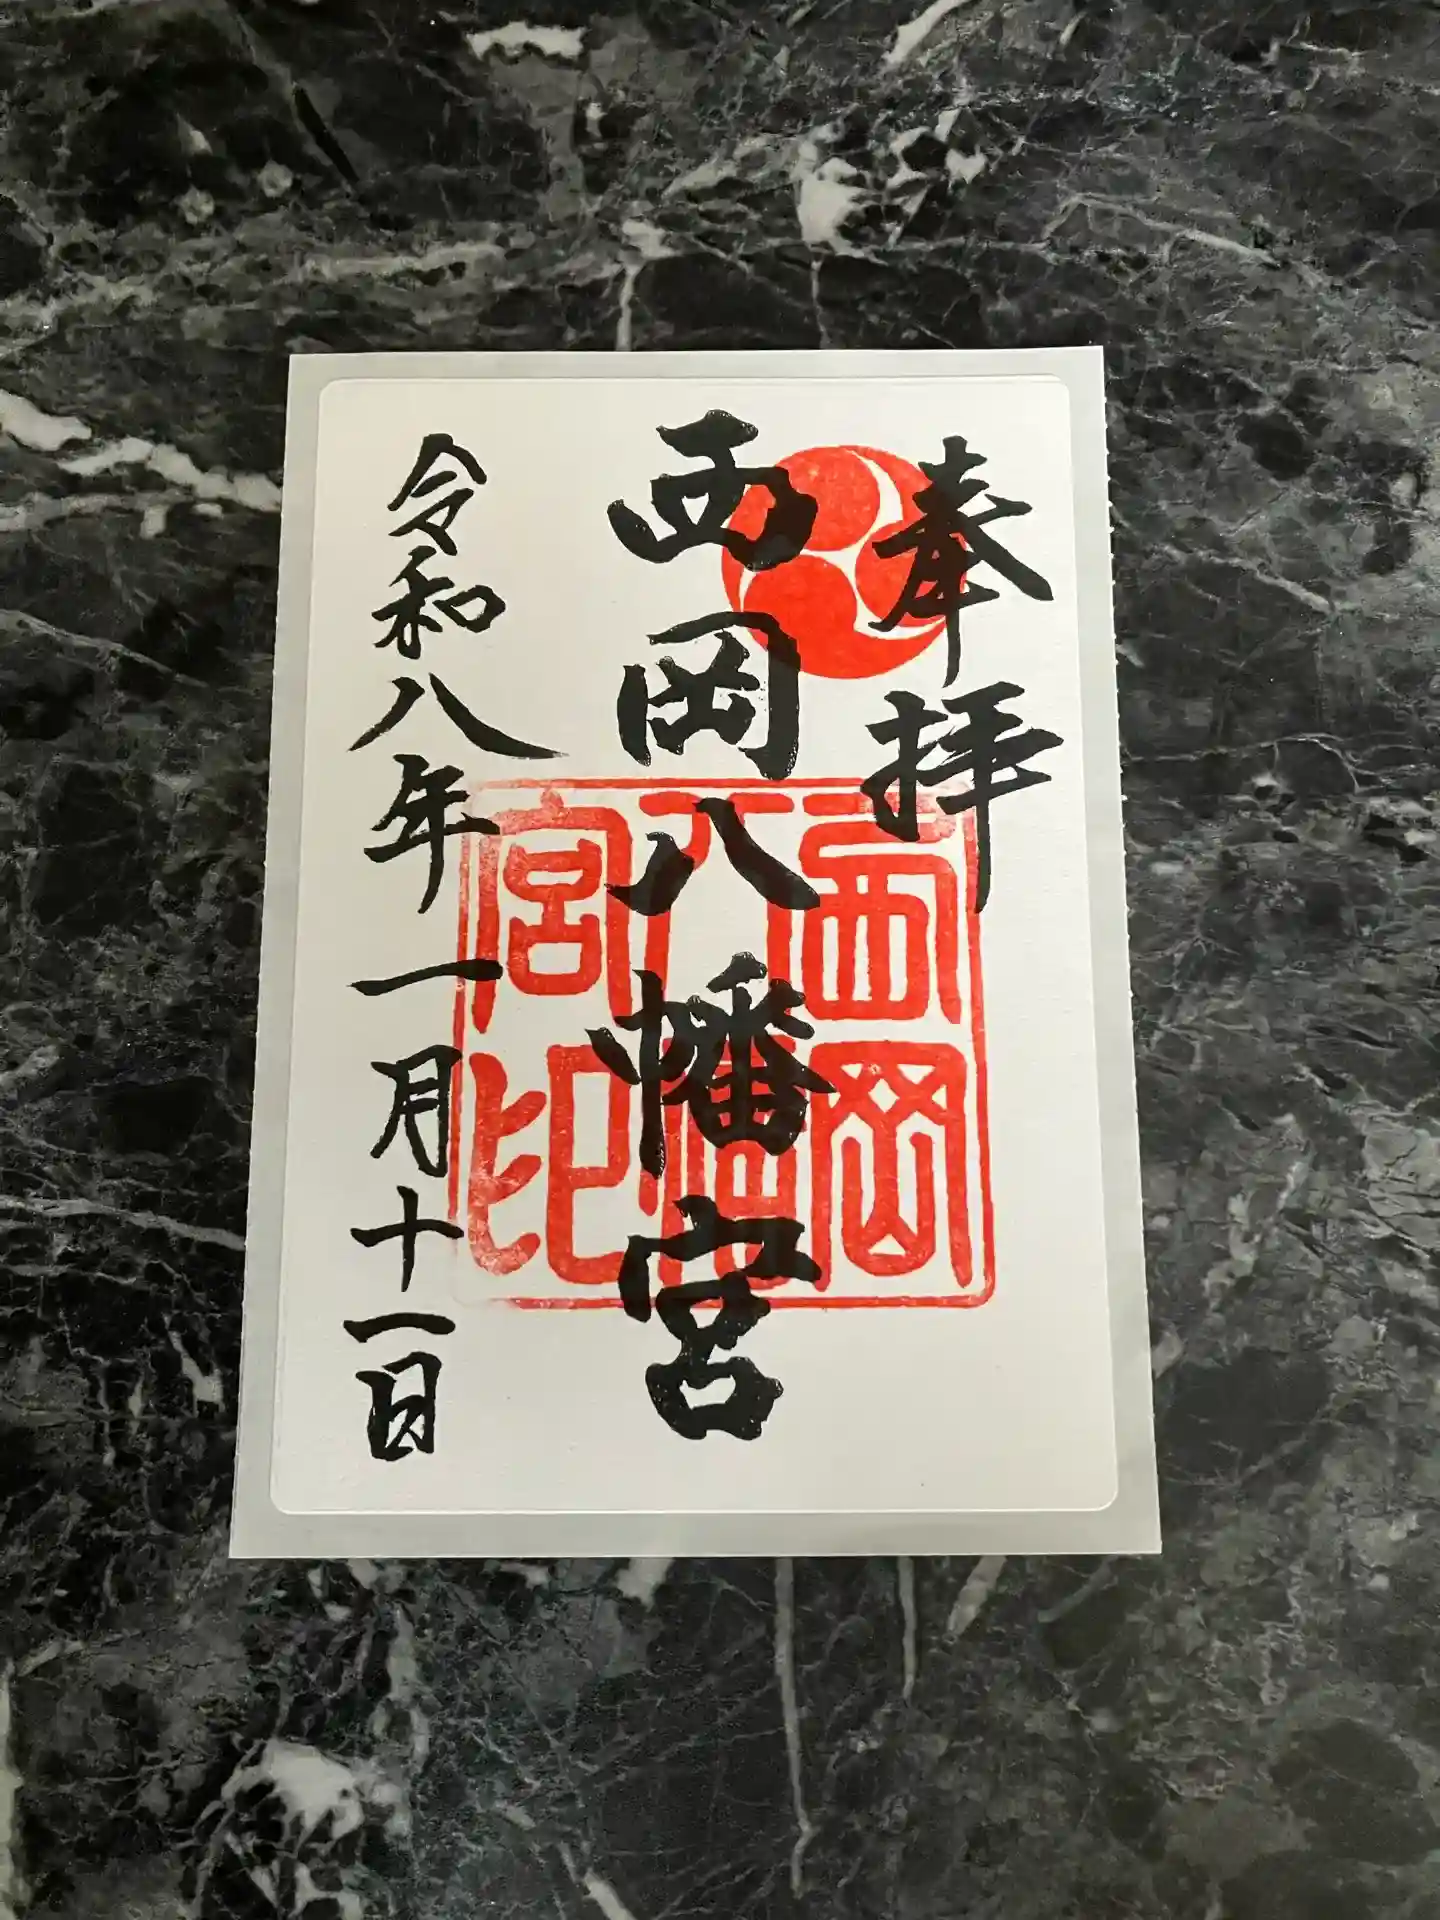 奉拝
西岡八幡宮
令和八年一月十一日
西岡
八幡
宮印